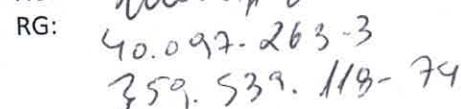 RG: 40.097.263-3
359.539.118-74